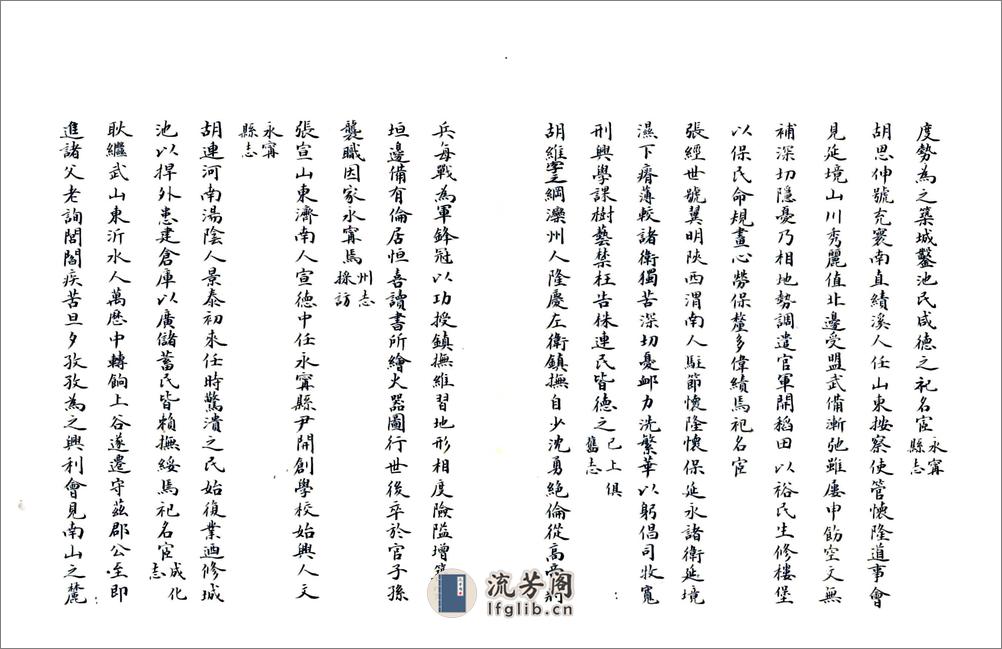 度勢為之築城鑿池民咸德之祀名宦永寧縣志
胡思伸號充寰南直績溪人任山東按察使管懷隆道事會
見延境山川秀麗值北邊受盟武備漸弛雖屢申飭空文無
補深切隱憂乃相地勢調遣官軍開稻田以裕民生修樓堡
以保民命規畫心勞保釐多偉績馬祀名宦
張經世號翼明陜西渭南人駐節懷隆懷保延永諸衛延境
濕下瘠薄較諸衛獨苦深切憂邮力洗繁華以躬倡司牧寬
刑興學課樹藝禁枉告株連民皆德之已上俱舊志
胡維寧之綱灤州人隆慶左衛鎮撫自少沈勇絕倫從高
兵每戰為軍鋒冠以功授鎮撫維習地形相度險隘增
垣邊備有倫居恒喜讀書所繪火器圖行世後卒於官子孫
襲職因家永寧馬州志採訪
張宣山東濟南人宣德中任永寧縣尹開創學校始興人文
永寧縣志
胡連河南湯陰人景泰初來任時驚潰之民始復業迺修城
池以捍外患建倉庫以廣儲蓄民皆賴撫綏馬祀名宦成化志
耿繼武山東沂水人萬歷中轉餉上谷遂遷守茲郡公至即
進諸父老詢閭閻疾苦旦夕孜孜為之興利會見南山之麓
流芳阁
lfglib.cn